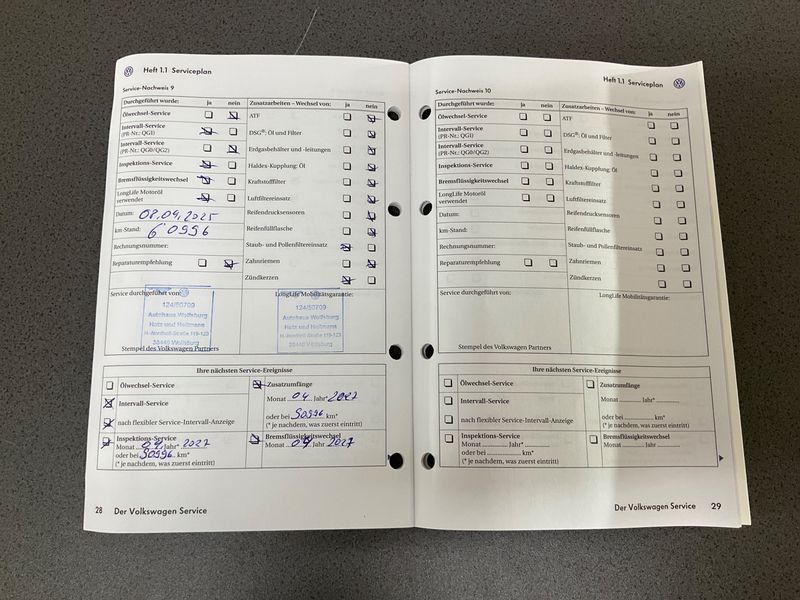 Heft 1.1 Serviceplan
Service-Nachweis 9
Durchgeführt wurde: ja nein
Ölwechsel-Service
Intervall-Service
(PR-Nr.: QG1)
Intervall-Service
(PR-Nr.: QG0/QG2)
Inspektions-Service
Bremsflüssigkeitswechsel
LongLife Motoröl
verwendet
Datum: 08.09.2025
km-Stand: 60996
Rechnungsnummer:
Reparaturempfehlung
Zusatzarbeiten – Wechsel von: ja nein
ATF
DSG®: Öl und Filter
Erdgasbehälter und -leitungen
Haldex-Kupplung: Öl
Kraftstofffilter
Luftfiltereinsatz
Reifendrucksensoren
Reifenfüllflasche
Staub- und Pollenfiltereinsatz
Zahnriemen
Zündkerzen
Service durchgeführt von:
124/50709
Autohaus Wolfsburg
Hotz und Heitmann
38440 Wolfsburg
Stempel des Volkswagen Partners
LongLife Mobilitätsgarantie:
124/50709
Autohaus Wolfsburg
Hotz und Heitmann
38440 Wolfsburg
Ihre nächsten Service-Ereignisse
Ölwechsel-Service
Intervall-Service
nach flexibler Service-Intervall-Anzeige
Inspektions-Service
Monat Jahr* 2027
oder bei km*
(* je nachdem, was zuerst eintritt)
Zusatzumfänge
Monat 04 Jahr* 2027
oder bei km*
(* je nachdem, was zuerst eintritt)
Bremsflüssigkeitswechsel
Monat Jahr 2027
28 Der Volkswagen Service
Heft 1.1 Serviceplan
Service-Nachweis 10
Durchgeführt wurde: ja nein
Ölwechsel-Service
Intervall-Service
(PR-Nr.: QG1)
Intervall-Service
(PR-Nr.: QG0/QG2)
Inspektions-Service
Bremsflüssigkeitswechsel
LongLife Motoröl
verwendet
Datum:
km-Stand:
Rechnungsnummer:
Reparaturempfehlung
Zusatzarbeiten – Wechsel von: ja nein
ATF
DSG®: Öl und Filter
Erdgasbehälter und -leitungen
Haldex-Kupplung: Öl
Kraftstofffilter
Luftfiltereinsatz
Reifendrucksensoren
Reifenfüllflasche
Staub- und Pollenfiltereinsatz
Zahnriemen
Zündkerzen
Service durchgeführt von:
Stempel des Volkswagen Partners
LongLife Mobilitätsgarantie:
Ihre nächsten Service-Ereignisse
Ölwechsel-Service
Intervall-Service
nach flexibler Service-Intervall-Anzeige
Inspektions-Service
Monat Jahr*
oder bei km*
(* je nachdem, was zuerst eintritt)
Zusatzumfänge
Monat Jahr*
oder bei km*
(* je nachdem, was zuerst eintritt)
Bremsflüssigkeitswechsel
Monat Jahr
Der Volkswagen Service 29